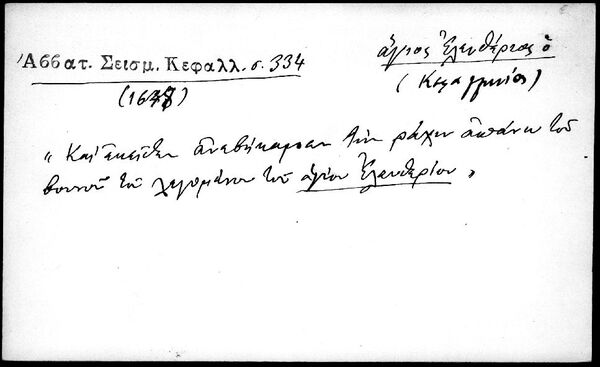 Ἀββατ. Σεισμ. Κεφαλλ. σ. 334
ἅγιος Ἐλευθέριος ὁ
(1637)
« Καὶ ἐκεῖθεν ἀνεβήκαμεν τὴν ράχιν ἀπάνω τοῦ
βουνοῦ τοῦ λεγομένου τοῦ ἁγίου Ἐλευθερίου »